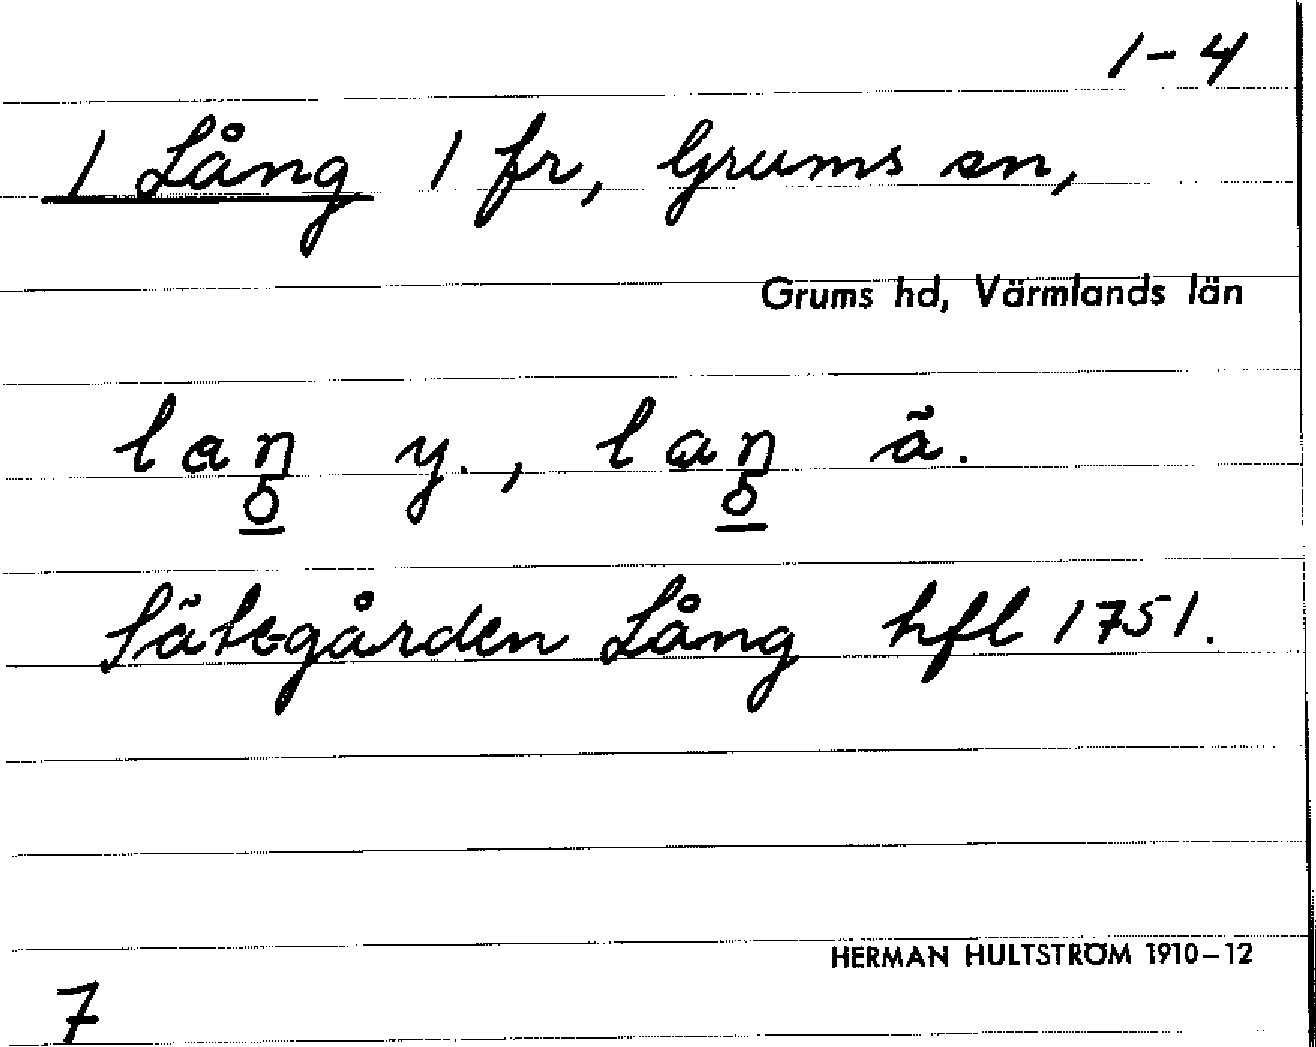 1-4
1 Lång 1 fr, Grums sn,
Grums hd, Värmlands län
lan y., lan ä.
Sätegården Lång hfl 1751.
HERMAN HULTSTRÖM 1910–12
7